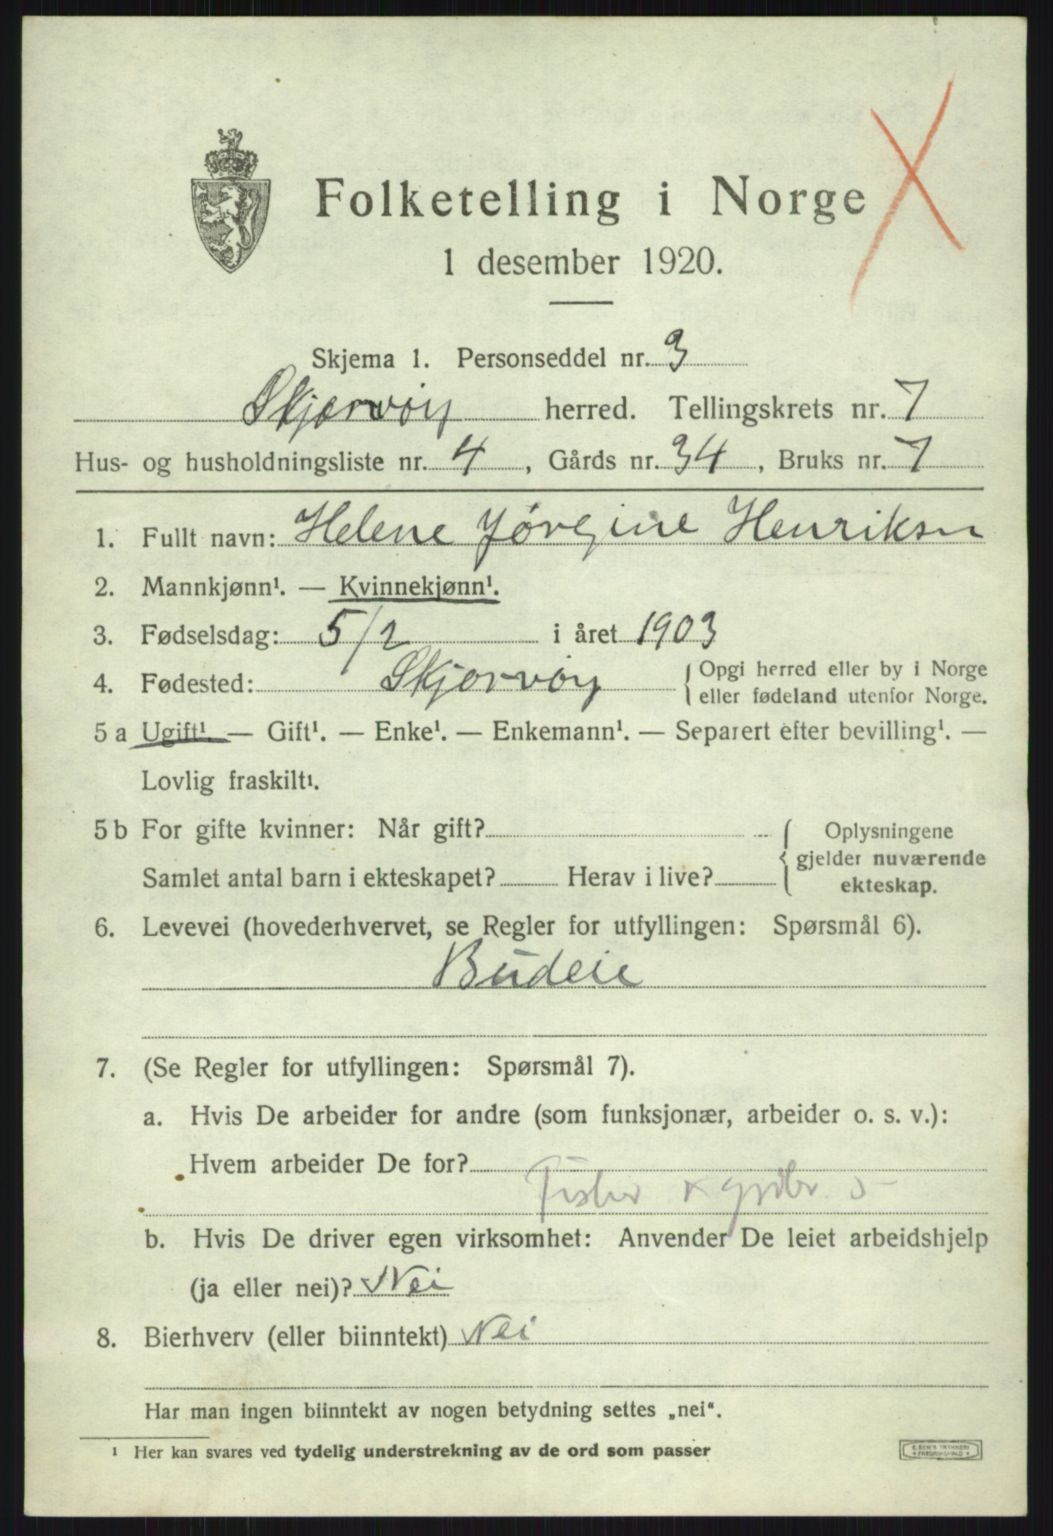 Folketelling i Norge
1 desember 1920.
Skjema 1. Personseddel nr. 3
Skjærvøy herred. Tellingskrets nr. 7
Hus- og husholdningsliste nr. 4, Gårds nr. 34, Bruks nr. 7
1. Fullt navn: Helene Jørgine Henriksen
2. Mannkjønn¹. — Kvinnekjønn¹.
3. Fødselsdag: 5/2 i året 1903
4. Fødested: Skjærvøy { Opgi herred eller by i Norge
eller fødeland utenfor Norge.
5 a Ugift¹. — Gift¹. — Enke¹. — Enkemann¹. — Separert efter bevilling¹. —
Lovlig fraskilt¹.
5 b For gifte kvinner: Når gift? { Oplysningene
gjelder nuværende
Samlet antal barn i ekteskapet? Herav i live?
ekteskap.
6. Levevei (hovederhvervet, se Regler for utfyllingen: Spørsmål 6).
Budeie
7. (Se Regler for utfyllingen: Spørsmål 7).
a. Hvis De arbeider for andre (som funksjonær, arbeider o. s. v.):
Hvem arbeider De for?
Fisker
b. Hvis De driver egen virksomhet: Anvender De leiet arbeidshjelp
(ja eller nei)? Nei
8. Bierhverv (eller biinntekt) Nei
Har man ingen biinntekt av nogen betydning settes „nei“.
¹ Her kan svares ved tydelig understrekning av de ord som passer